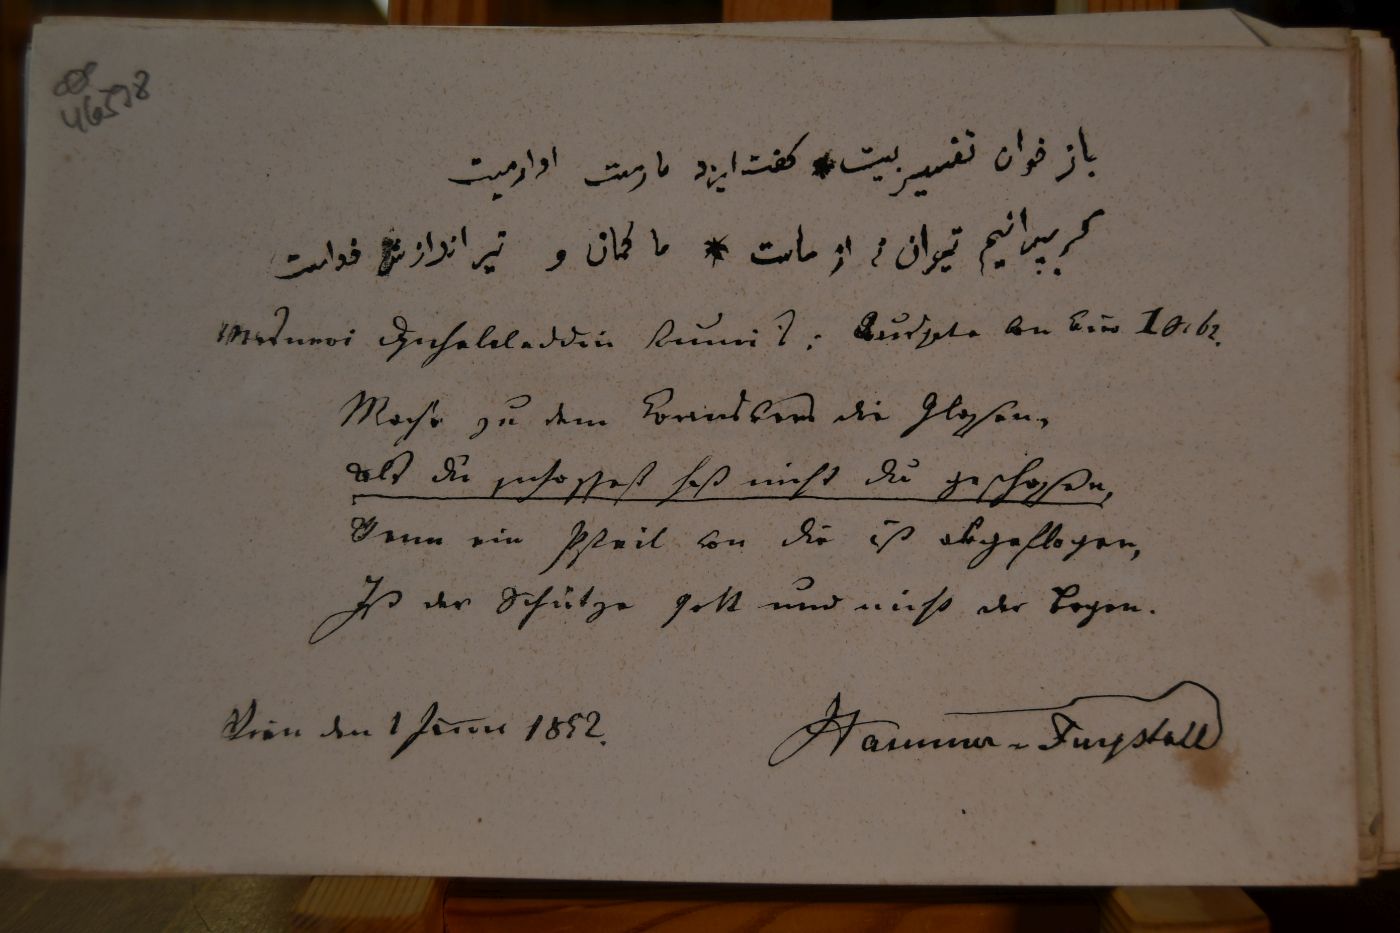 46598
باز خوان تفسیر بیت * گفت ایزد ما رمیت اذ رمیت
گر بپرانیم تیر آن نی از ماست * ما کمان و تیر اندازش خداست
Mesnewi Dschelaleddin Rumi's; von I
Mache zu dem Koransvers die Glossen,
als du schossest hast nicht du geschossen,
Wenn ein Pfeil von dir ist abgeflogen,
Ist der Schütze Gott und nicht der Bogen.
Wien den 1 Juni 1852.
Hammer-Purgstall